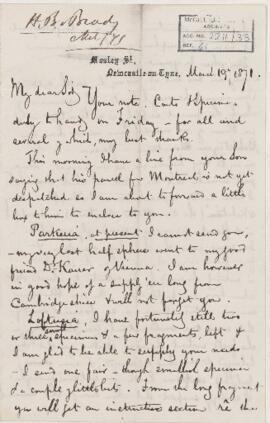 H. B. Brady
McGILL U
ARCHIVES
ACC. NO. 2211/33
REF. 6
Mosley St.
Newcastle on Tyne, March 13th 1871.
My dear Sir,
Your note, & specimens
duly to hand on Friday – for all and
several of which, my best thanks.
This morning I have a line from your Son
saying that his parcel for Montreal is not yet
despatched so I am about to forward a little
box to him to enclose to you.
Parkeria, at present I cannot send you,
– my very last half sphere went to my good
friend Dr. of Vienna. I am however
in good hope of a supply 'ere long from
Cambridgeshire & will not forget you.
Loftusia, I have fortunately still two
or three small specimens & a few fragments left &
I am glad to be able to supply your needs
– I send one fair – though small specimen
& a couple of little bits. From the long fragment
you will get an instructive section re the